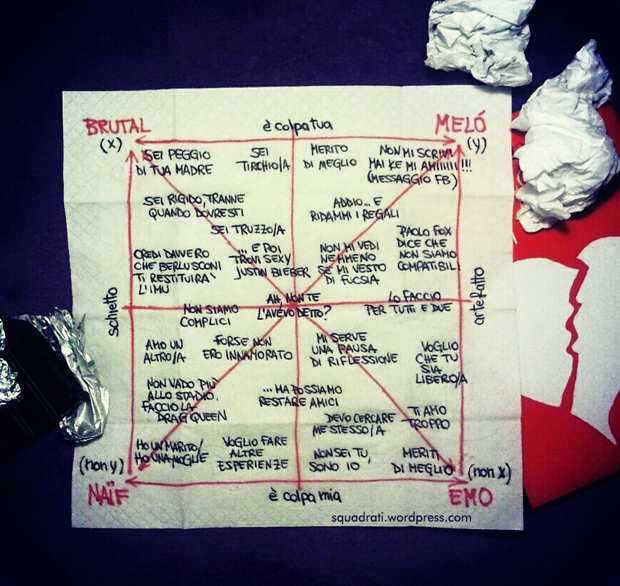 BRUTAL
(x)
è colpa tua
MELÓ
(y)
SEI PEGGIO
DI TUA MADRE
SEI
TIRCHIO/A
MERITO
DI MEGLIO
NON MI SCRIVI
MAI KE MI AMIIIIII !!!
(MESSAGGIO FB)
SEI RIGIDO, TRANNE
QUANDO DOVRESTI
ADDIO... E
RIDAMMI I REGALI
SEI TRUZZO/A
CREDI DAVVERO
CHE BERLUSCONI
TI RESTITUIRA'
L'IMU
... E POI
TROVI SEXY
JUSTIN BIEBER
NON MI VEDI
NEMMENO
SE MI VESTO
DI FUCSIA
PAOLO FOX
DICE CHE
NON SIAMO
COMPATIBILI
schietto
NON SIAMO
COMPLICI
AH, NON TE
L'AVEVO DETTO?
LO FACCIO
PER TUTTI E DUE
artefatto
AMO UN
ALTRO/A
FORSE NON
ERO INNAMORATO
MI SERVE
UNA PAUSA
DI RIFLESSIONE
VOGLIO
CHE TU
SIA
LIBERO/A
NON VADO PIÙ
ALLO STADIO.
FACCIO LA
DRAG QUEEN
... MA POSSIAMO
RESTARE AMICI
DEVO CERCARE
ME STESSO/A
TI AMO
TROPPO
HO UN MARITO/
HO UNA MOGLIE
VOGLIO FARE
ALTRE
ESPERIENZE
NON SEI TU,
SONO IO
MERITI
DI MEGLIO
(non y)
NAÏF
è colpa mia
(non x)
EMO
squadrati.wordpress.com